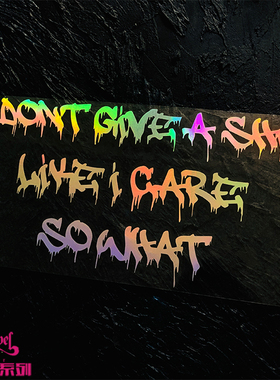 DONT GIVE A SH
LIKE I CARE
SO WHAT
系列